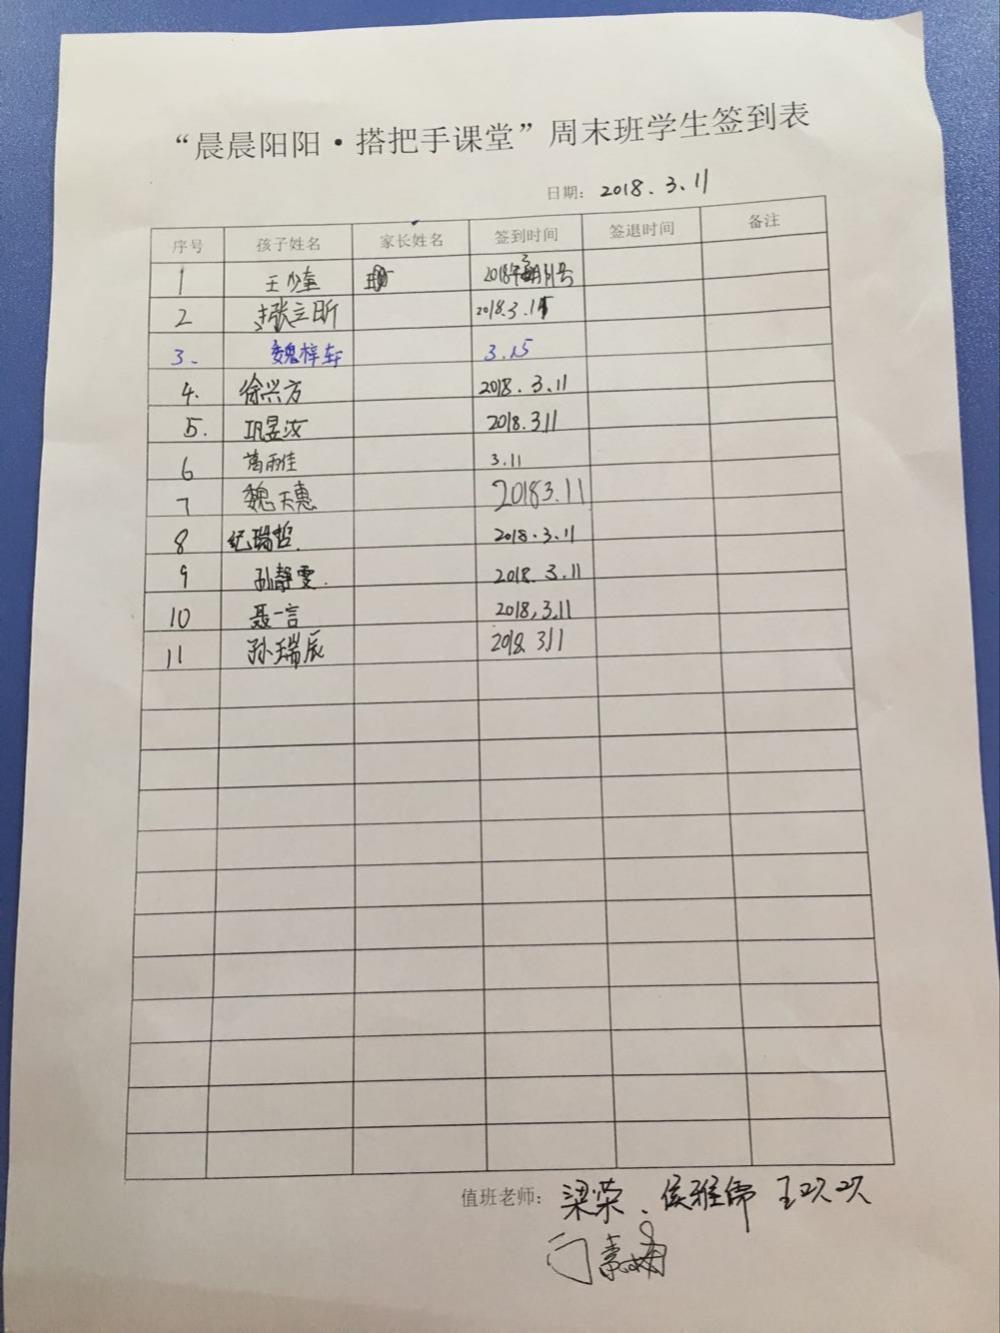 “晨晨阳阳·搭把手课堂”周末班学生签到表
日期: 2018.3.11
序号 孩子姓名 家长姓名 签到时间 签退时间 备注
1 王少奎 2018年3月11号
2 张立昕 2018.3.11
3. 魏梓轩 3.15
4. 徐兴方 2018.3.11
5. 巩昱汝 2018.311
6 葛雨佳 3.11
7 魏天惠 20183.11
8 纪瑞哲. 2018.3.11
9 孙静雯. 2018.3.11
10 聂一言 2018,3.11
11 孙瑞辰 2018.311
值班老师: 梁荣、侯雅儒 王双双
闫